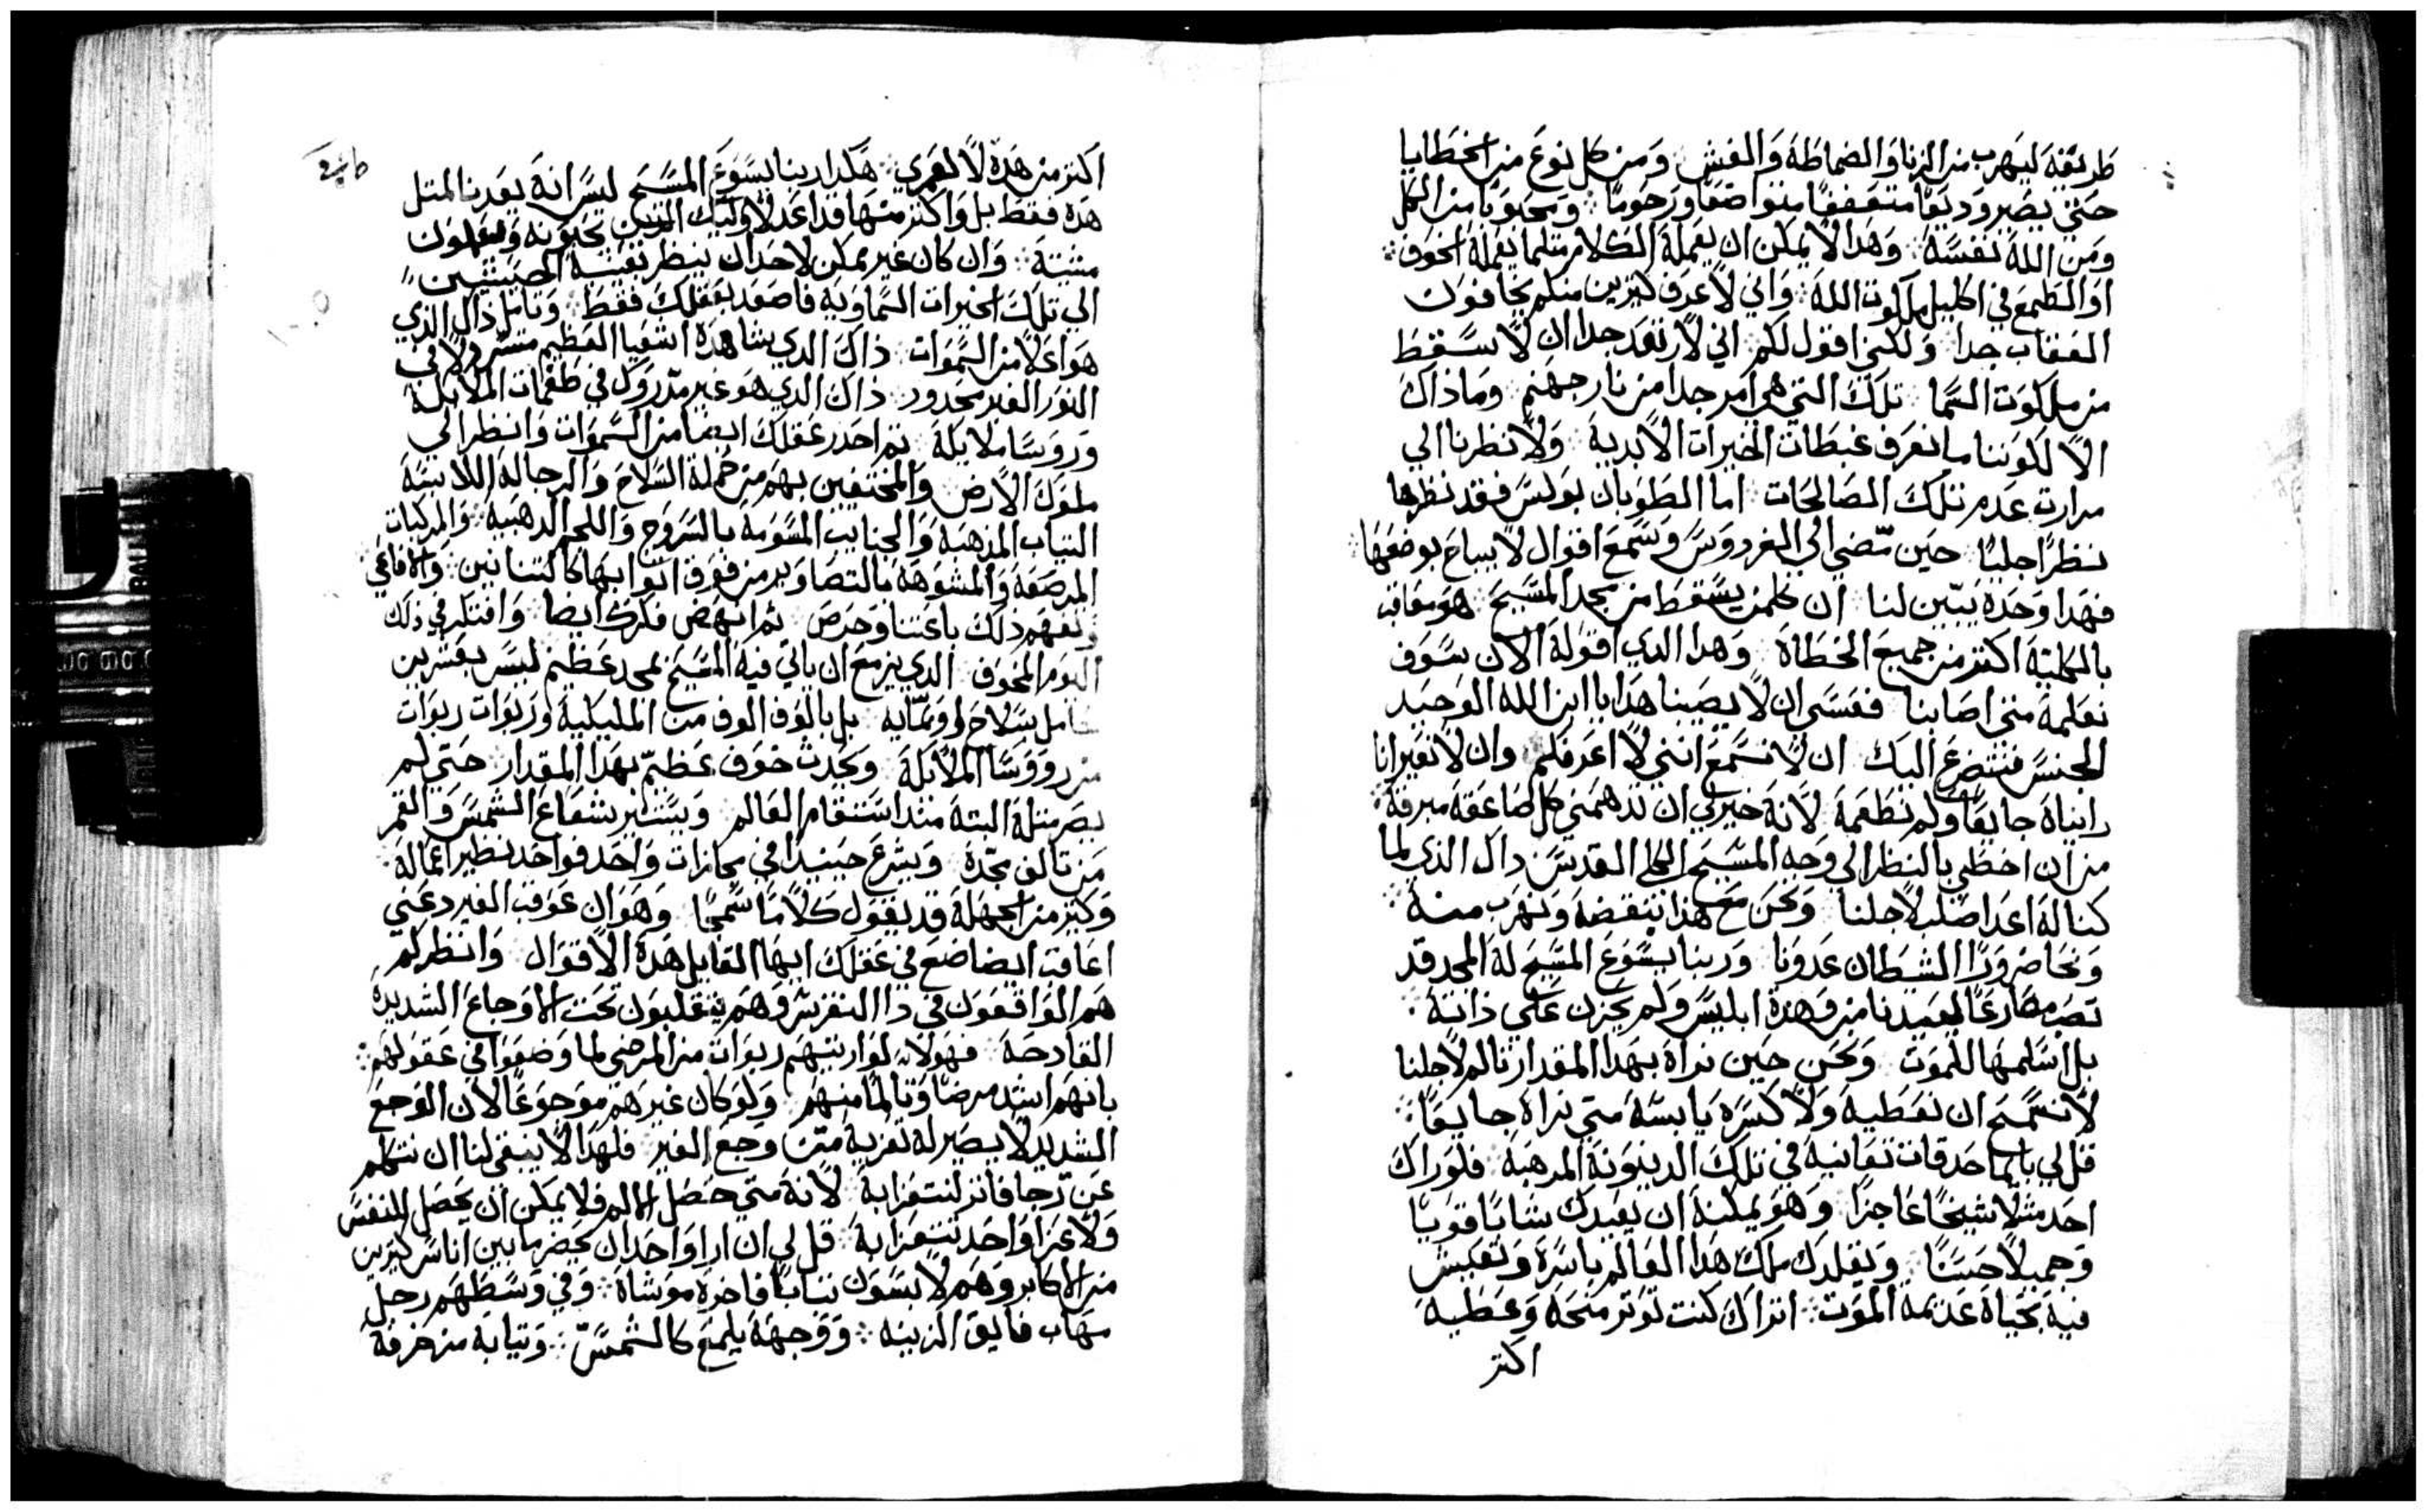 طريقة ليهرب من الزنا والضماطة والغش ومن كل نوع من الخطايا
حتي يصير وديعًا متعففًا متواضعًا ورحومًا ❖ ومحبوبًا من الكل
ومن الله نفسه ❖ وهدا لا يمكن ان يعمله الكلام متلما يعمله الخوف ❖
او الطمع في اكليل ملكوت الله ❖ واني لاعرف كتيرين منكم يخافون
العقاب جدا ولكني اقول لكم اني لارتعد جدا ان لا نسقط
من ملكوت السما ❖ تلك التي هي امر جدا من نار جهنم وما داك
الا لكوننا ما نعرف غبطات الخيرات الابدية ولا نظرنا الي
مرارت عدم تلك الصالحات ❖ اما الطوبان بولس فقد نظرها
نظرًا جليًا حين مضي الي الفردوس وسمع اقوال لا يباح بوصفها ❖
فهدا وحده يبين لنا ان كلمن يسقط من مجد المسيح هو معاقب
بالكلية اكتر من جميع الخطاة وهدا الدي اقوله الان سوف
نعلمه متي اصابنا فعسي ان لا يصيبنا هدا يا ابن الله الوحيد
الجنس فنتضرع اليك ان لا نسمع انني لا اعرفكم وان لا تعيرانا
رايناه جايعًا ولم نطعمه لانه خير لي ان تدهمني كل صاعقة مبرقة ❖
من ان احظي بالنظر الي وجه المسيح الكلي القدس داك الدي لما
كنا له اعدا صلب لاجلنا ونحن مع هدا نبغضه ونهرب منه ❖
ونحاضر ورا الشيطان عدونا وربنا يسوع المسيح له المجد قد
تصد مصارعًا ليعيدنا من وهدة ابليس ولم يحزن علي داته ❖
بل اسلمها للموت ونحن حين نراه بهدا المقدار تالم لاجلنا
لا نسمح ان نعطيه ولا كسرة يابسة متي نراه جايعًا ❖
قل لي باتما حدقات تعاينه في تلك الدينونة المرهبة ❖ فلو راك
احد متلًا شيخًا عاجزًا وهو يمكنه ان يعيدك شابًا قويًا
وجميلًا حسنًا ❖ ويقلدك ملك هدا العالم باسره وتعيش
فيه بحياة عديمة الموت ❖ اتراك كنت توتر منحه وعطيه
اكتر
اكتر من هده لا لعمري ❖ هكدا ربنا يسوع المسيح ليس انه يعدنا المتل
هده فقط بل واكتر منها قد اعد لاوليك الدين يحبونه ويعملون
مشيته ❖ وان كان غير ممكن لاحد ان ينظر بعينيه الحسيتين
الي تلك الخيرات السماوية فاصعد بعقلك فقط وتامل داك الدي
هو اعلا من السموات داك الدي شاهده اشعيا العظيم متسربلًا في
النور الغير محدود داك الدي هو غير مدروك في طغمات الملايكة
وروسا ملايكة تم احدر عقلك ايضا من السموات وانظر الي
ملوك الارض والمحتفين بهم من حملة السلاح والرجالة اللابسة
التياب المدهبة والجنايب المسومة بالسروج واللجم الدهبية والمركبات
المرصعة والمشوهة بالتصاوير من فوق اتوابها كالتنانين والافاعي ❖
وتفهم دلك باعتنا وحرص تم انهض فكرك ايضا وافتكر في دلك
اليوم المخوف الدي يزمع ان ياتي فيه المسيح بمجد عظيم ليس بعشرين
حامل سلاح او بماية بل بالوف الوف من المليكية وربوات ربوات
من رووسا الملايكة ويحدت خوف عظيم بهدا المقدار حتي لم
يصر متله البتة مند استقام العالم ويستتر شعاع الشمس والقمر
من تالق مجده ويشرع حينيدا في مجازات واحد فواحد نظير اعماله ❖
وكتير من الجهلة قد يقول كلامًا سمجًا وهو ان عوقب الغير دعني
اعاقب ايضا ضع في عقلك ايها القايل هده الاقوال وانظر كم
هم الواقعون في دا النقرس وهم يتقلبون تحت الاوجاع الشديدة
الفادحة ❖ فهولا لو اريتهم ربوات من المرضي لما وضعوا في عقولهم ❖
بانهم اشد مرضًا وتالمًا منهم ولو كان غيرهم موجوعًا لان الوجع
الشديد لا يصير له تعزية متي وجع الغير فلهدا لا ينبغي لنا ان نتكلم
عن رجا فاتر لنتعزا به لانه متي حصل الالم فلا يمكن ان يحصل للنفس
ولا عزا واحد نتعزا به ❖ قل لي ان ارا واحد ان يحضر ما بين اناس كتيرين
من الاكابر وهم لابسون تيابًا فاخرة موشاة ❖ وفي وسطهم رجل
مهاب فايق الزينه ❖ ووجهه يلمع كالشمس ❖ وتيابه مزخرفة